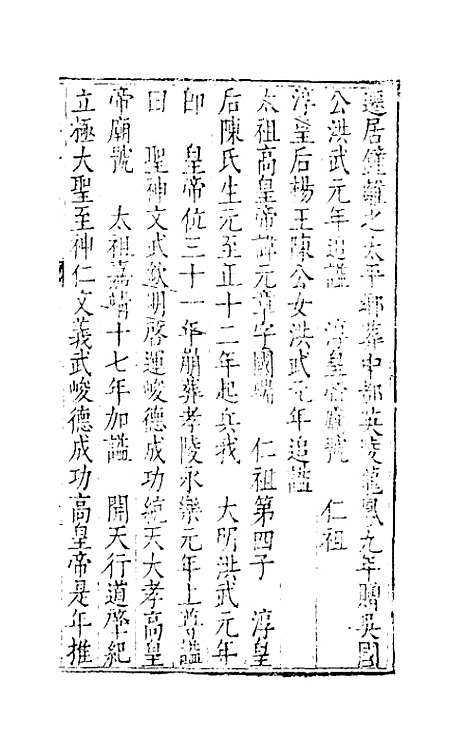 遷居鐘離之太平鄉葬中都英陵龍鳳九年贈吳國
公洪武元年追謚　淳皇帝廟號　仁祖
淳皇后楊王陳公女洪武元年追謚
太祖高皇帝諱元璋字國瑞　仁祖第四子　淳皇
后陳氏生元至正十二年起兵我　大明洪武元年
即　皇帝位三十一年崩葬孝陵永樂元年上尊謚
曰　聖神文武欽明啓運峻德成功統天大孝高皇
帝廟號　太祖嘉靖十七年加謚　開天行道肇紀
立極大聖至神仁文義武峻德成功高皇帝是年推